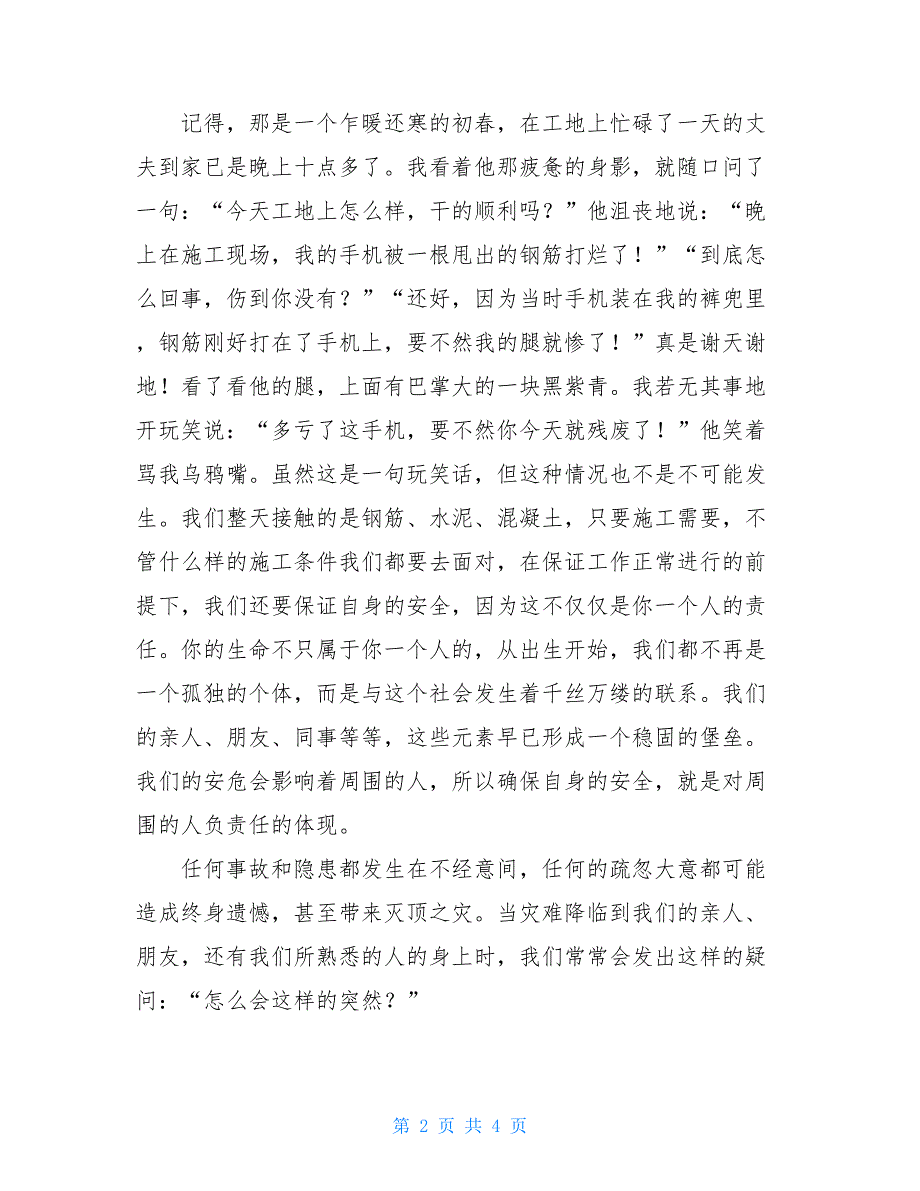 记得，那是一个乍暖还寒的初春，在工地上忙碌了一天的丈
夫到家已是晚上十点多了。我看着他那疲惫的身影，就随口问了
一句：“今天工地上怎么样，干的顺利吗？”他沮丧地说：“晚
上在施工现场，我的手机被一根甩出的钢筋打烂了！”“到底怎
么回事，伤到你没有？”“还好，因为当时手机装在我的裤兜里
，钢筋刚好打在了手机上，要不然我的腿就惨了！”真是谢天谢
地！看了看他的腿，上面有巴掌大的一块黑紫青。我若无其事地
开玩笑说：“多亏了这手机，要不然你今天就残废了！”他笑着
骂我乌鸦嘴。虽然这是一句玩笑话，但这种情况也不是不可能发
生。我们整天接触的是钢筋、水泥、混凝土，只要施工需要，不
管什么样的施工条件我们都要去面对，在保证工作正常进行的前
提下，我们还要保证自身的安全，因为这不仅仅是你一个人的责
任。你的生命不只属于你一个人的，从出生开始，我们都不再是
一个孤独的个体，而是与这个社会发生着千丝万缕的联系。我们
的亲人、朋友、同事等等，这些元素早已形成一个稳固的堡垒。
我们的安危会影响着周围的人，所以确保自身的安全，就是对周
围的人负责任的体现。
任何事故和隐患都发生在不经意间，任何的疏忽大意都可能
造成终身遗憾，甚至带来灭顶之灾。当灾难降临到我们的亲人、
朋友，还有我们所熟悉的人的身上时，我们常常会发出这样的疑
问：“怎么会这样的突然？”
第 2 页 共 4 页